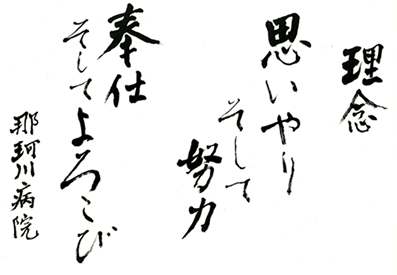 理念
思いやり
そして
努力
奉仕
そして
よろこび
那珂川病院